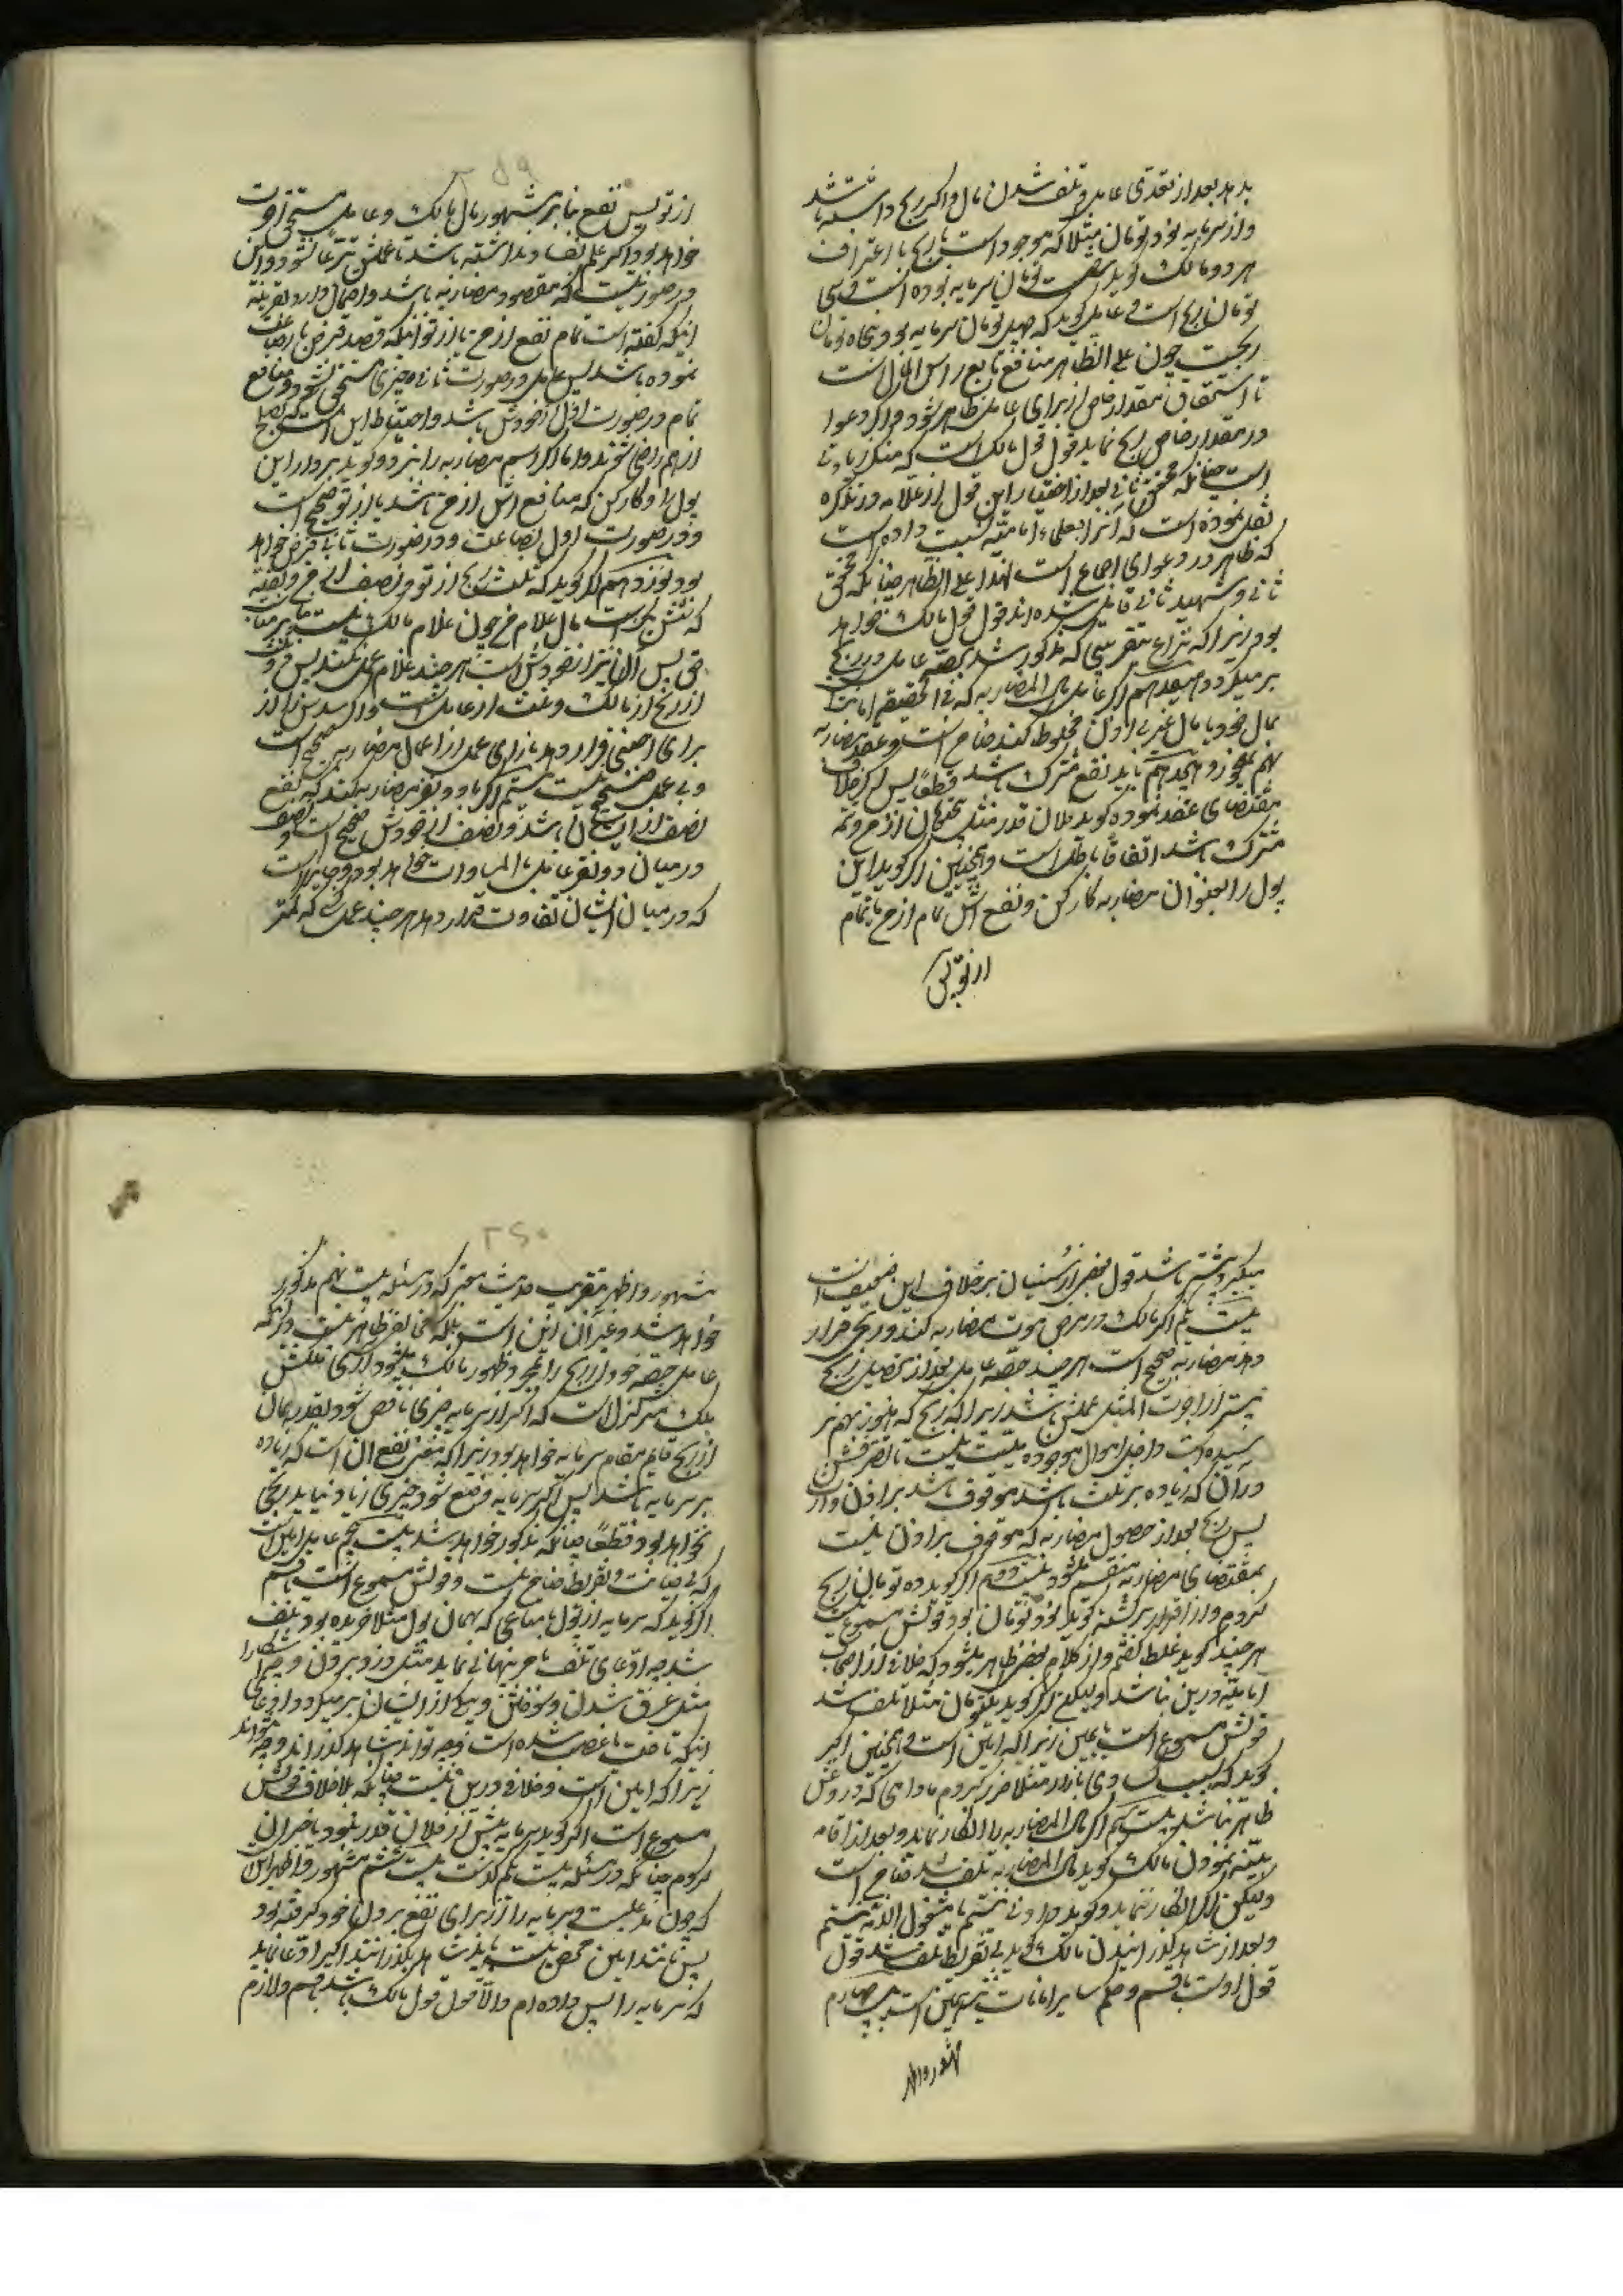 بدهد بعد از تعدّی عامل و تلف شدن مال و اکر ربح داشته باشد
و از سرمایه نود تومان مثلا که موجود است با ربح با اعتراف
هر دو مالک کوید شصت تومان سرمایه بوده است و سی
تومان ربح است و عامل کوید که چهل تومان سرمایه بود و پنجاه تومان
ربحست چون علی الظاهر منافع تابع راس المال است
تا استحقاق مقدار خاص از برای عامل ظاهر شود و اکر دعوا
در مقدار خاص ربح نماید قول قول مالک است که منکر زیادتی
است چنانکه محقق ثانی بعد از اختیار این قول از علامه در تذکره
نقل نموده است که آنرا بعلماء امامیّه نسبت داده است
که ظاهر در دعوای اجماع است لهذا علی الظاهر چنانکه محقق
ثانی و شهید ثانی قایل شده اند قول قول مالک خواهد
بود زیرا که نزاع بتقریبی که مذکور شد بحصّه عامل در ربح
بر میکردد هفدهم اکر عامل مال المضاربه که فی الحقیقه امانت
بمال خود یا مال غیر بی اذن مخلوط کند ضامن است و عقد مضاربه
بهم نمیخورد هیجدهم باید نفع مشترک باشد قطعًا پس اکر خلاف
مقتضای عقد نموده کوید فلان قدر مثل پنجتومان از من و تتمه
مشترک باشد اتفاقًا باطل است و همچنین اکر کوید این
پول را بعنوان مضاربه کار کن و نفع اش تمام از من یا تمام
از تو پس
از تو پس نفع بنا بر مشهور مال مالک و عامل مستحق اجرت
خواهد بود اکر علم بفساد نداشته باشد تا عملش تبرّعًا نشود و این
در صورتیست که مقصود مضاربه باشد و احتمال دارد بقرینه
اینکه کفته است تمام نفع از من یا از تو اینکه قصد قرض یا بضاعت
نموده باشد پس عامل در صورت ثانی چیزی مستحق نشود و منافع
تمام در صورت اول از خودش باشد و احتیاط این است که بصلح
از هم راضی شوند و اما اکر اسم مضاربه را نبرد و کوید بردار این
پول را و کار کن که منافع اش از من باشد یا از تو صحیح است
و در صورت اول بضاعت و در صورت ثانی قرض خواهد
بود نوزدهم اکر کوید که ثلث ربح از تو و نصف از من و بقیه
که سدس است مال غلام من چون غلام مالک نیست بنا بر مذهب
حق پس آن نیز از خودش است هر چند غلام عمل نکند پس دو ثلث
از ربح از مالک و ثلث از عامل است و اکر سدس را از
برای اجنبی قرار دهد بازای عملی از اعمال مضاربه صحیح است
و بی عمل صحیح نیست بیستم اکر با دو نفر مضاربه کند که نفع
نصف از ایشان باشد و نصف از خودش صحیح است و نصف
در میان دو نفر عامل بالمساوات خواهد بود و جایز است
که در میان ایشان تفاوت قرار دهد هر چند عمل آنکه کمتر
میکیرد بیشتر باشد قول بعضی از سنیان بر خلاف این ضعیف است
بیست و یکم اکر مالک در مرض موت مضاربه کند و ربحی قرار
دهد مضاربه صحیح است هر چند حصّه عامل بعد از تحصیل ربح
بیشتر از اجرت المثل عملش باشد زیرا که ربح که هنوز بهم نر
سیده است داخل اموال موجوده میّت نیست تا تصرفش
در آن که زیاده بر ثلث باشد موقوف باشد بر اذن وارث
پس ربح بعد از حصول مضاربه که موقوف بر اذن نیست
بمقتضای مضاربه منقسم میشود بیست و دویم اکر کوید ده تومان ربح
کردم و از اقرار برکشته کوید نه تومان بود قولش مسموع نیست
هر چند کوید غلط کفتم و از کلام بعضی ظاهر میشود که خلافی از اصحاب
امامیّه درین نباشد و لیکن اکر کوید یکتومان مثلا تلف شد
قولش مسموع است با یمین زیرا که امین است و همچنین اکر
کوید که بسبب کسادی بازار مثلا ضرر کردم مادامی که دروغش
ظاهر نباشد بیست و سیم اکر مال المضاربه را انکار نماید و بعد از اقامه
بیّنه نمودن مالک کوید مال المضاربه تلف شد ضامن است
و لیکن اکر انکار ننماید و کوید دادنی نیستم یا مشغول الذمّه نیستم
و بعد از شاهد کذرانیدن مالک کوید بی تفریط تلف شد قول
قول اوست با قسم و حکم سایر امانات نیز چنین است بیست و چهارم
مشهور و اظهر
مشهور و اظهر بتقریب حدیث معتبر که در مسئله بیست و نهم مذکور
خواهد شد و غیر آن این است بلکه مخالف ظاهر نیست در آنکه
عامل حصّه خود از ربح را بمجرد ظهور مالک میشود آری ملکش
ملک متزلزل است که اکر از سرمایه چیزی ناقص شود بقدر همان
از ربح قایم مقام سرمایه خواهد بود زیرا که معنی نفع آن است که زیاده
بر سرمایه باشد پس اکر سرمایه وضع شود چیزی زیاد نیاید ربحی
نخواهد بود قطعًا چنانکه مذکور خواهد شد بیست و پنجم عامل امین است
که بی خیانت و تفریط ضامن نیست و قولش مسموع است با قسم
اکر کوید که سرمایه از پول یا متاعی که بهمان پول مثلا خریده بود تلف
شد چه ادّعای تلف بامر پنهانی نماید مثل دزد بردن و چه آشکارا
مثل غرق شدن و سوختن و چه کی از ایشان بر میکردد ادعای
اینکه تاخت یا غصب شده است و چه تواند شاهد کذراند و چه نتواند
زیرا که امین است و خلافی درین نیست چنانکه بلا خلاف قولش
مسموع است اکر کوید سرمایه بیش از فلان قدر نبود یا خسران
کردم چنانکه در مسئله بیست و یکم کذشت بیست و ششم مشهور و اظهر این است
که چون مدعیست و سرمایه را از برای نفع بردن خود کرفته بود
پس مانند امین محض نیست باید شاهد بکذراند اکر ادعا نماید
که سرمایه را پس داده ام والّا قول قول مالک باشد با قسم و لازم